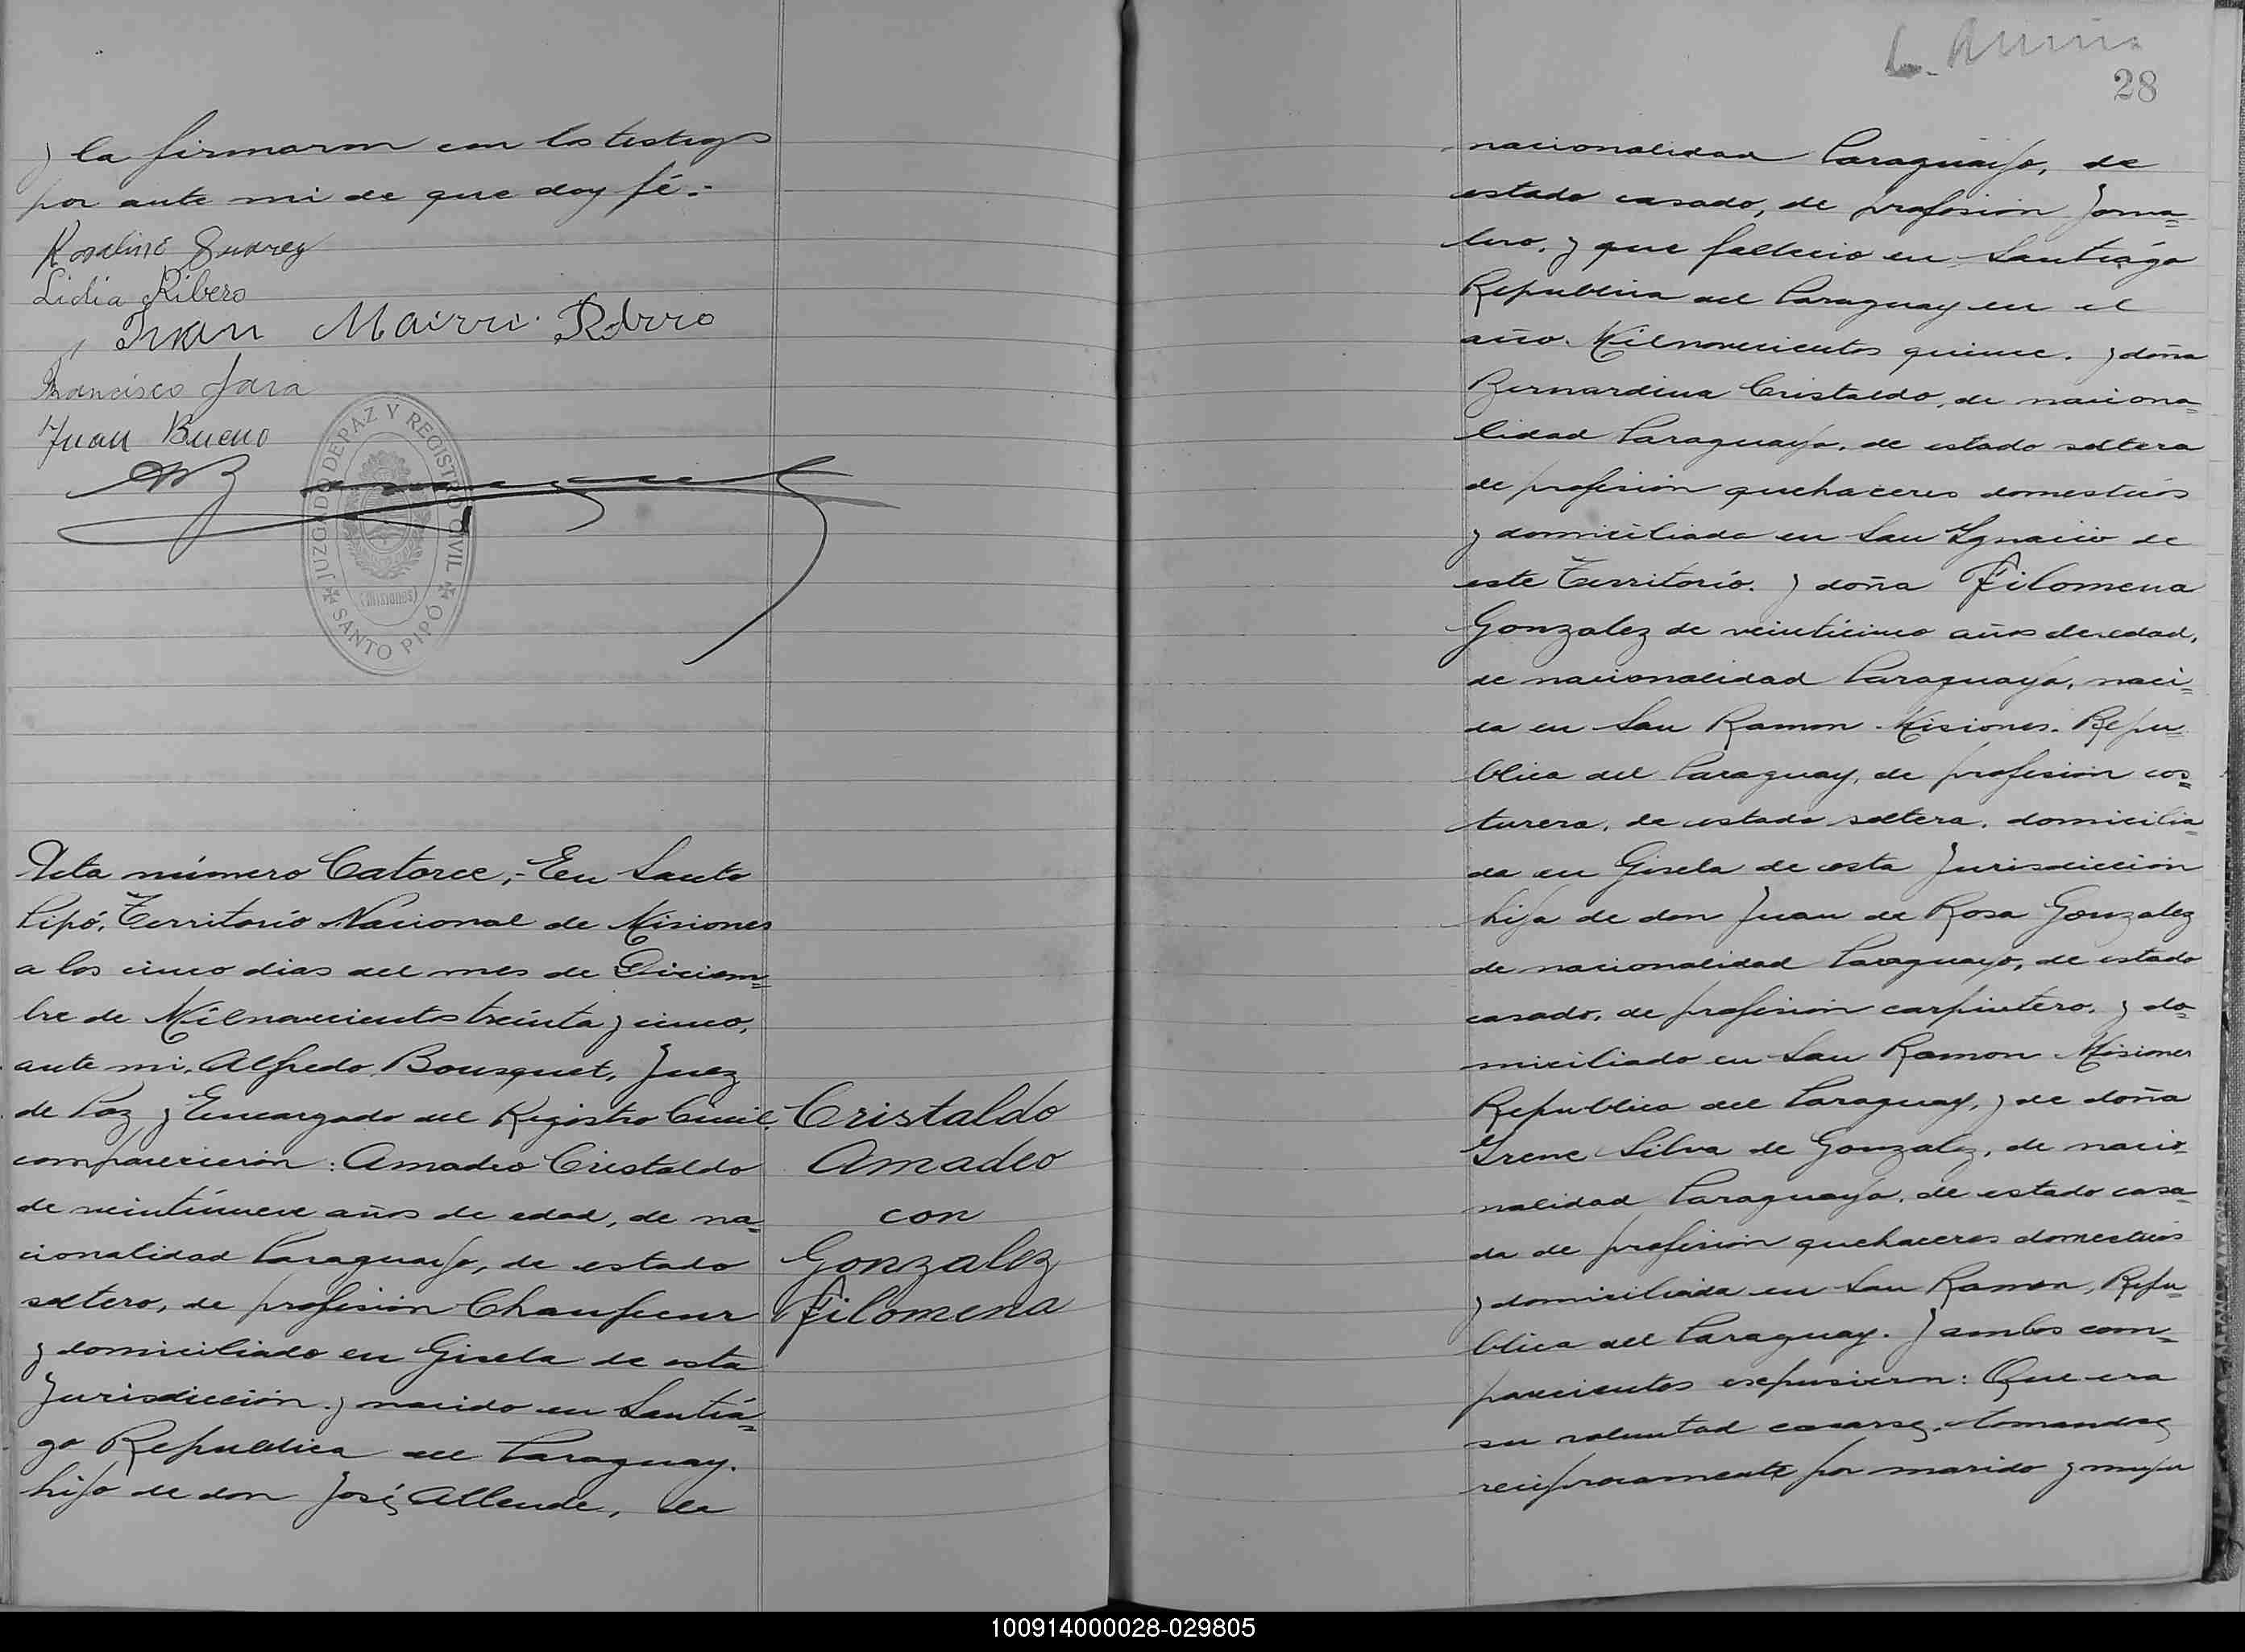 y la firmaron con los testigos
por ante mi de que doy fé.-
Roselino Suarez
Lidia Ribero
Juan
Francisco Jara
Juan Bueno
JUZGADO DE PAZ Y REGISTRO CIVIL
(Misiones)
SANTO PIPÓ
Acta número Catorce,- En Santo
Pipó, Territorio Nacional de Misiones
a los cinco dias del mes de Diciem=
bre de Milnovecientos treinta y cinco,
ante mi, Alfredo Bousquet, Juez
de Paz y Encargado del Registro Civil,
comparecieron: Amadeo Cristaldo
de veintinueve años de edad, de na=
cionalidad Paraguayo, de estado
soltero, de profesión Chaufeur
y domiciliado en Gisela de esta
Jurisdicción y nacido en Santiá=
go Republica del Paraguay.
hijo de don José Allende, de
Cristaldo
Amadeo
con
Gonzalez
Filomena
28
nacionalidad Paraguayo, de
estado casado, de profesión Jorna=
lero, y que fallecio en Santiágo
Republica del Paraguay en el
año Milnovecientos quince. y doña
Bernardina Cristaldo, de naciona=
lidad Paraguaya, de estado soltera
de profesión quehaceres domesticos
y domiciliada en San Ygnacio de
este Territorio. y doña Filomena
Gonzalez de veinticinco años de edad,
de nacionalidad Paraguaya, naci=
da en San Ramon Misiones. Repu=
blica del Paraguay, de profesión cos=
turera, de estado soltera, domicilia=
da en Gisela de esta Jurisdicción
hija de don Juan de Rosa Gonzalez
de nacionalidad Paraguayo, de estado
casado, de profesión carpintero, y do=
miciliado en San Ramon Misiones
Republica del Paraguay, y de doña
Yrene Silva de Gonzalez, de nacio=
nalidad Paraguaya, de estado casa=
da de profesión quehaceres domesticos
y domiciliada en San Ramon, Repu=
blica del Paraguay. y ambos com=
parecientes expusieron: Que era
su voluntad casarse, tomandose
reciprocamente por marido y mujer
100914000028-029805